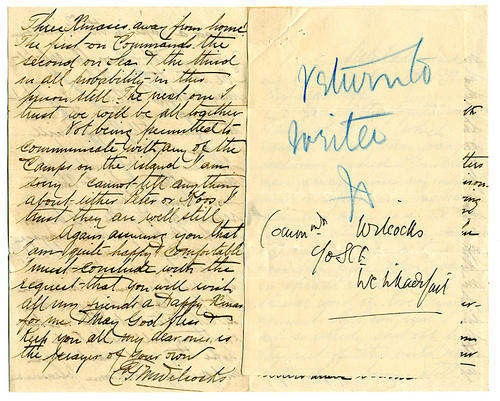 Three Xmases away from home
The first on Commando, the
second on sea & the third
in all probability in this
prison still. The next one I
trust we will be all together
Not being permitted to
communicate with any of the
Camps on the island I am
sorry I cannot tell anything
about either
trust they are well still
Again assuring you that
I am quite happy & comfortable
I must conclude with the
request that you will wish
all my friends a Happy Xmas
for me & May God bless &
Keep you all my dear ones, is
the prayer of your own
Wilcocks
return to
writer
Wilcocks